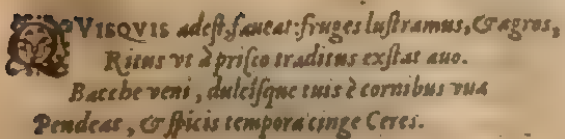 QVISQVIS adeſt, faueat: fruges luſtramus, & agros,
Ritus vt à priſco traditus exſtat auo.
Bacche veni, dulciſque tuis è cornibus vua
Pendeat, & ſpicis tempora cinge Ceres.